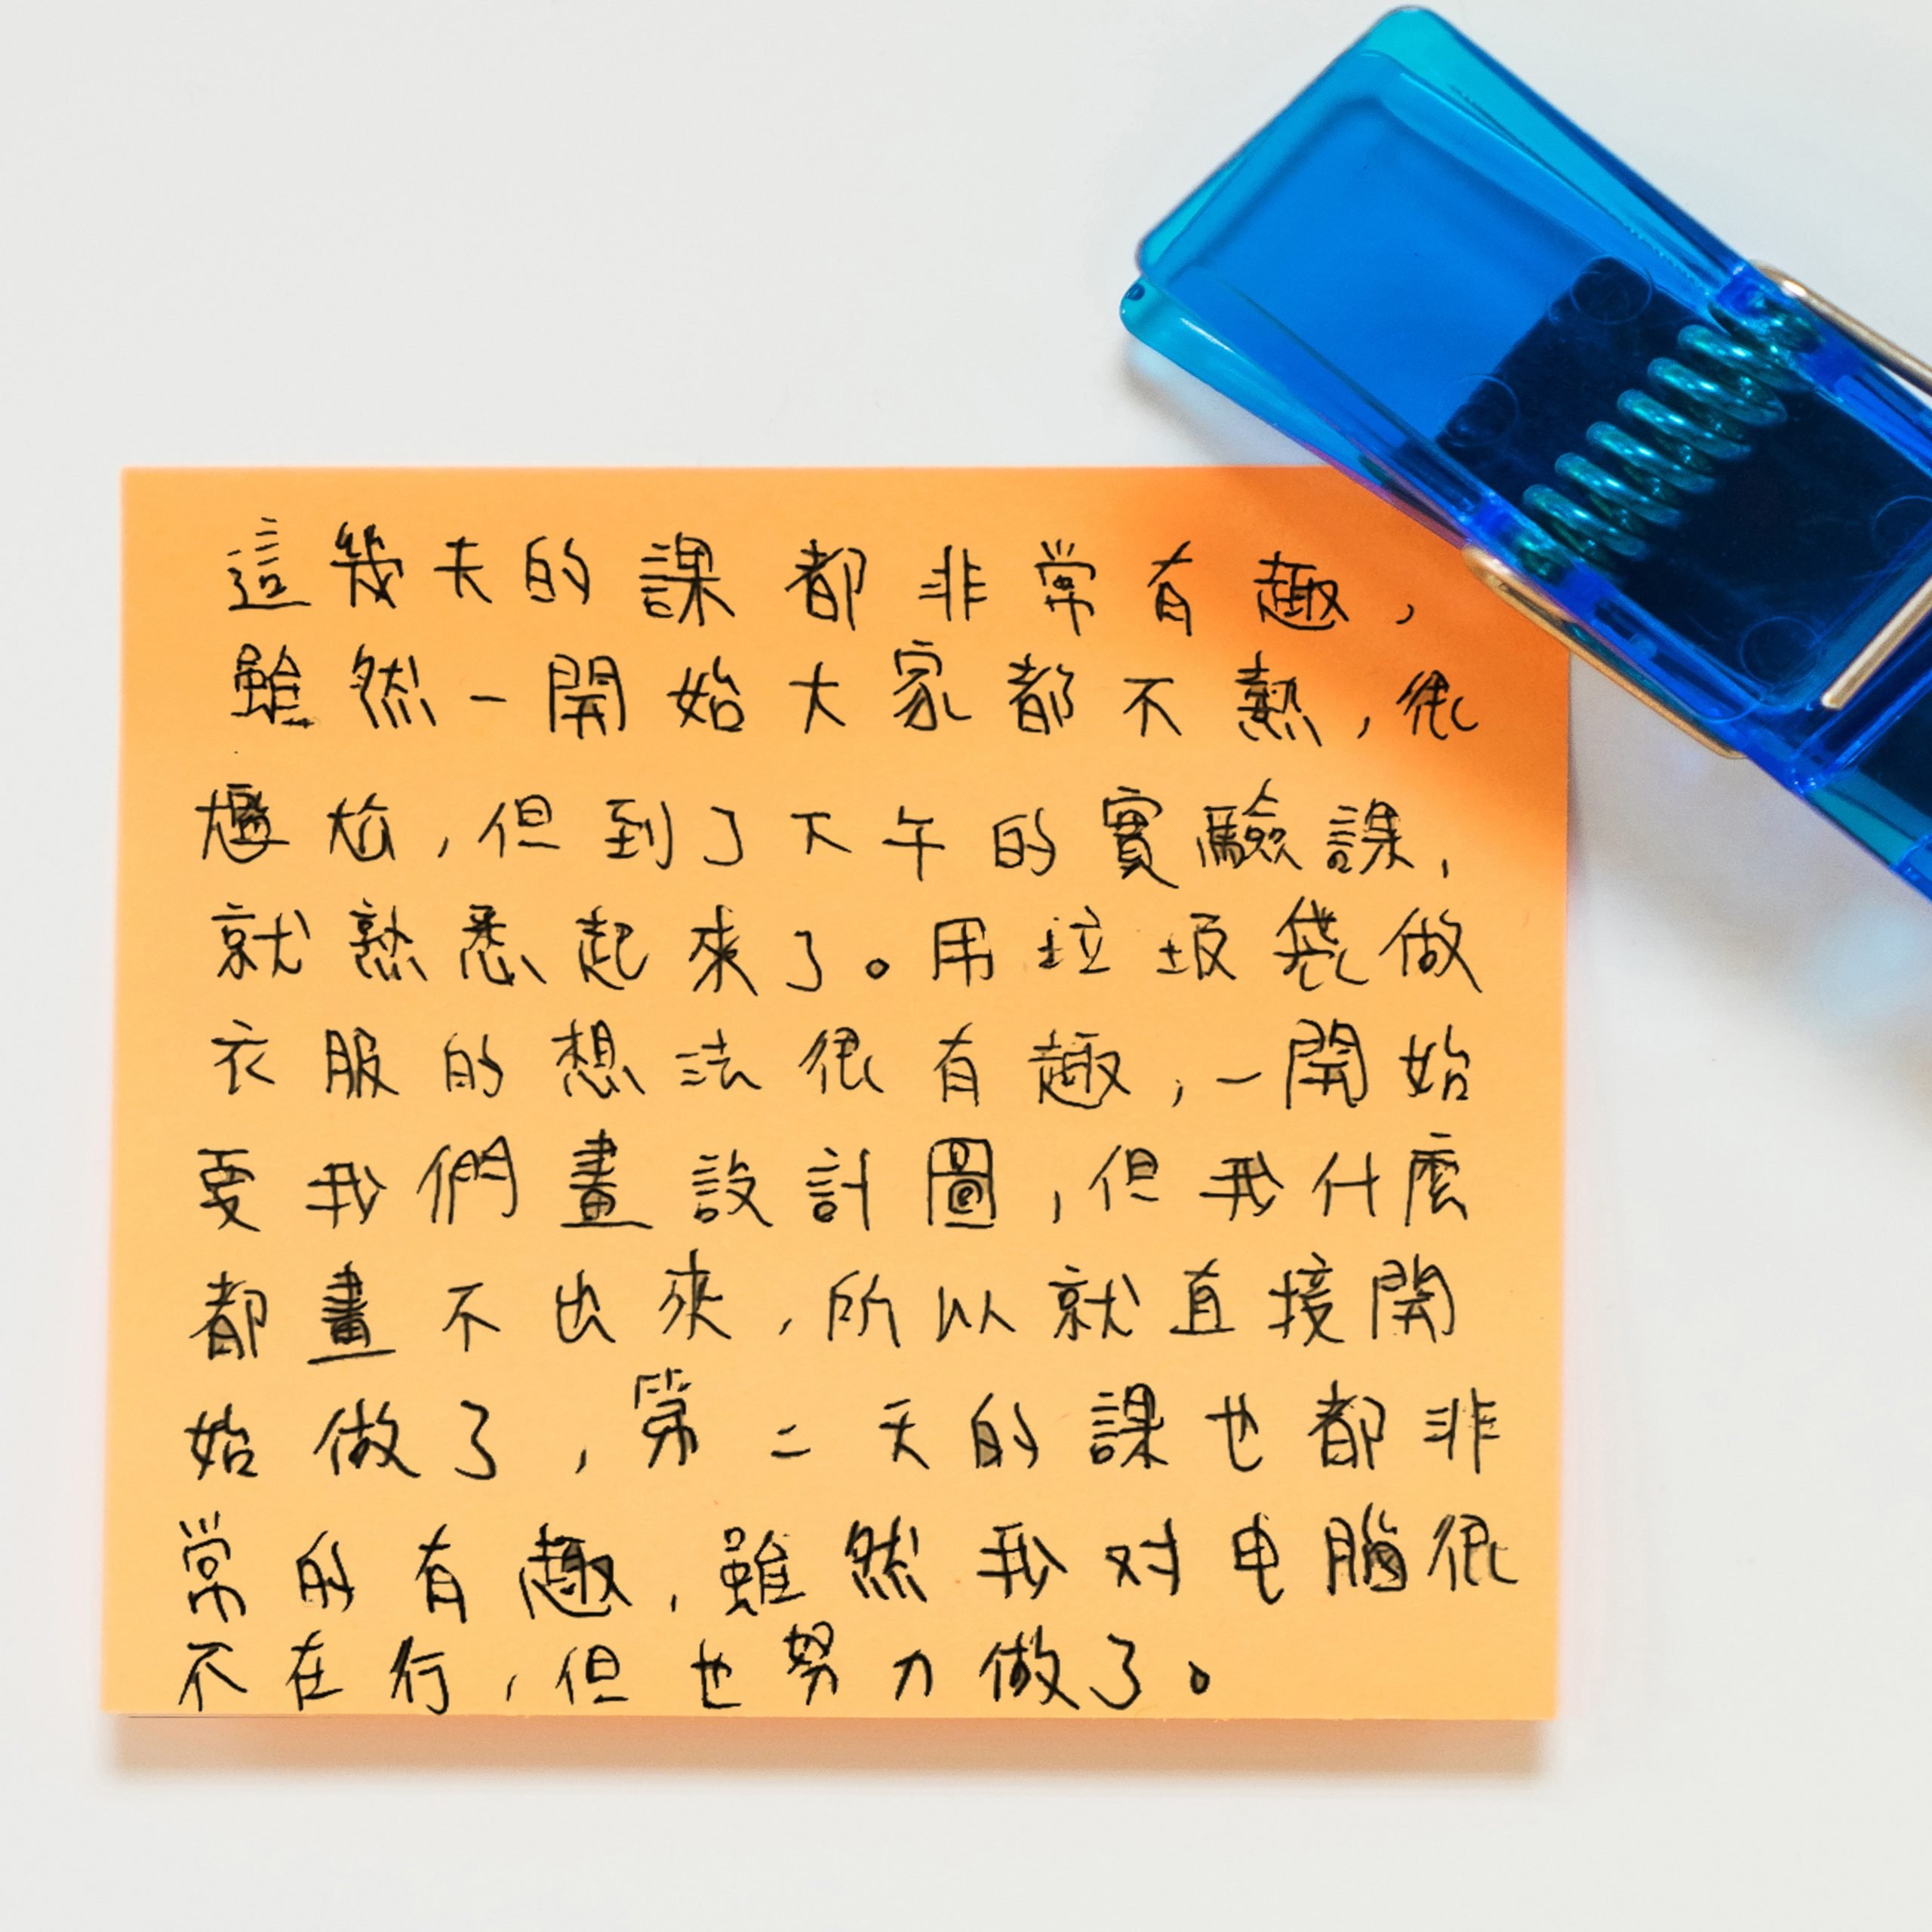 這幾天的課都非常有趣，
雖然一開始大家都不熱，很
尷尬，但到了下午的實驗課，
就熟悉起來了。用垃圾袋做
衣服的想法很有趣，一開始
要我們畫設計圖，但我什麼
都畫不出來，所以就直接開
始做了，第二天的課也都非
常的有趣，雖然我对电腦很
不在行，但也努力做了。